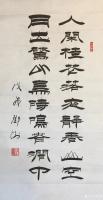 人閑桂花落夜静春山空
月出驚山鳥時鳴春澗中
戊戌